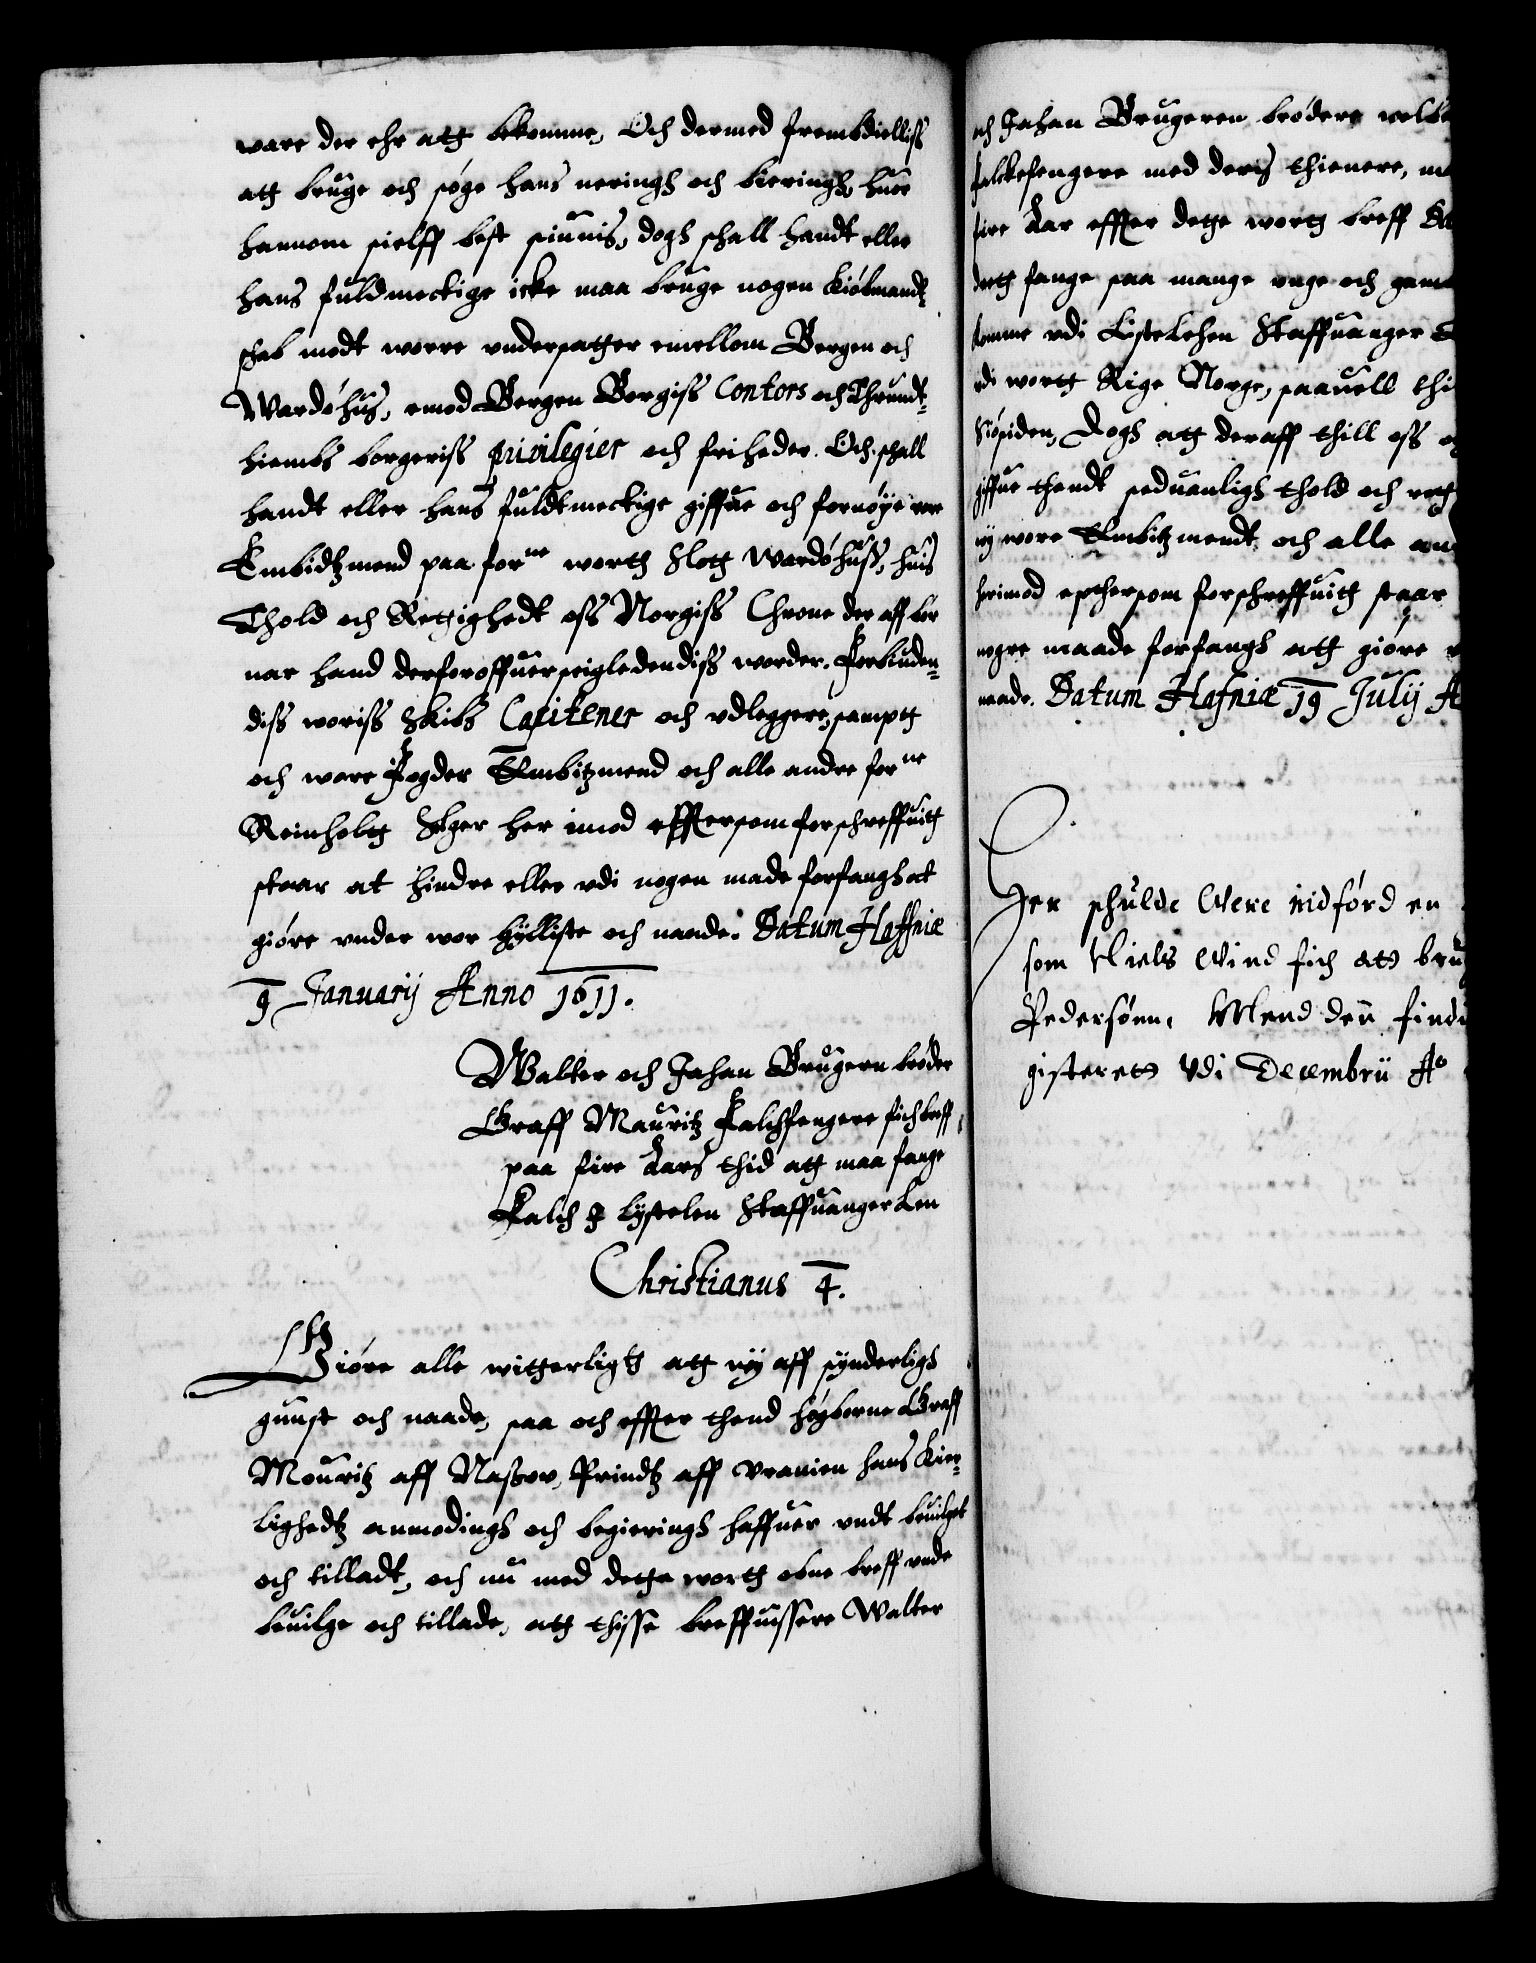 ware der ehr att bekomme, Och dermed frembdieliss
att bruge och søge hans neringh och biering, huor
hannom sielff best siunis, dogh schall handt eller
hans fuldmectige icke maa bruge nogen Kiøbmand-
schab modt worre undersatter emellom Bergen och
Wardøhus, emod Bergen Borgiss Contors och Thrundt-
hiembs borgeriss privilegier och friheder. Och schall
handt eller hans fuldtmectige giffue och fornøye wor
Embidtzmend paa forne wortt Slott Wardøhuss, huis
Thold och Rettighedt oss Norgiss Chrone der aff bør
nar hand derfor offuer seigledendiss worder. Forbiuden-
diss woriss Skibs Capitener och udleggere, sampt
och wore Fogder Embitzmend och alle andre forne
Reinholtt her imod effter som forschreffuitt
staar at hindre eller udi nogen made forfangh at
giøre under wor hylliste och naade. Datum Haffniæ
9 Januarij Anno 1611.
Walter och Johan Brugern brøder
Graff Mauritz Falchfengere fich breff
paa fire Aars thid att maa fange
Falch I Lystelen Staffuanger Len
Christianus 4.
Giøre alle witterligt att wy aff synderligh
gunst och naade, saa och effter thend høyborne Graff
Mouritz aff Nassov, Prindtz aff Uranien hans Kier-
lighedtz anmodingh och begieringh haffuer undt beuilget
och tilladt, och nu med dette wortt obne breff unde
beuilge och tillade, att thisse breffuissere Walter
och Johan Brugeren brødere
falckefengere med deris thienere,
fire Aar effter dette wortt breff
fange saa mange unge och
udi Liste Lehen Staffuanger
udi wortt Rige Norge, saauell
Siøsiden, Dogh att deraff thill oss
giffue thendt seduanligh thold och
wore Embitzmendt och alle
herimod epthersom forschreffuitt staar
nogre maade forfangh att giøre
naade. Datum Hafniæ 19 Julij
Her schulde Were indførd en
som Niels Wind fich att
Pedersønn, Mend den
gisteret Udi Decembrii Ao